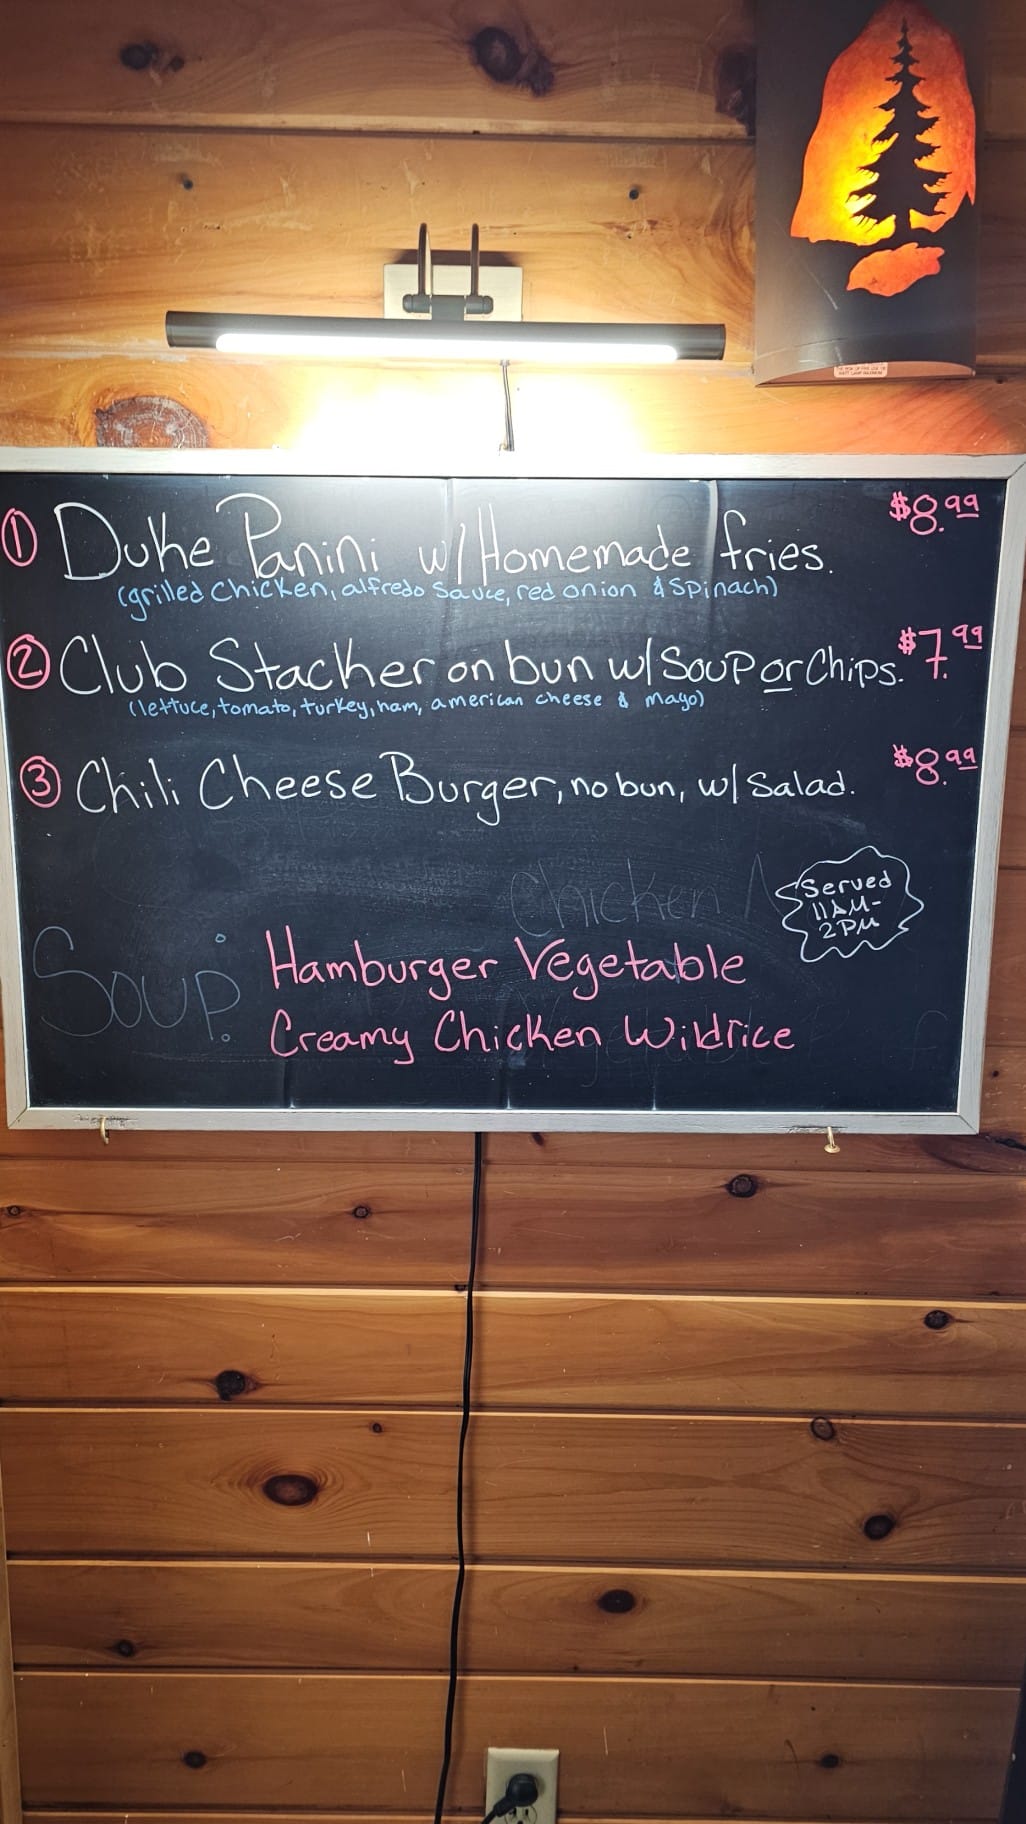 ① Duke Panini w/Homemade fries. $8.99
(grilled Chicken, alfredo Sauce, red onion & Spinach)
② Club Stacker on bun w/ Soup or Chips. $7.99
(lettuce, tomato, turkey, ham, american cheese & mayo)
③ Chili Cheese Burger, no bun, w/ Salad. $8.99
Served
11AM-
2PM
Chicken
Soup: Hamburger Vegetable
Creamy Chicken Wildrice